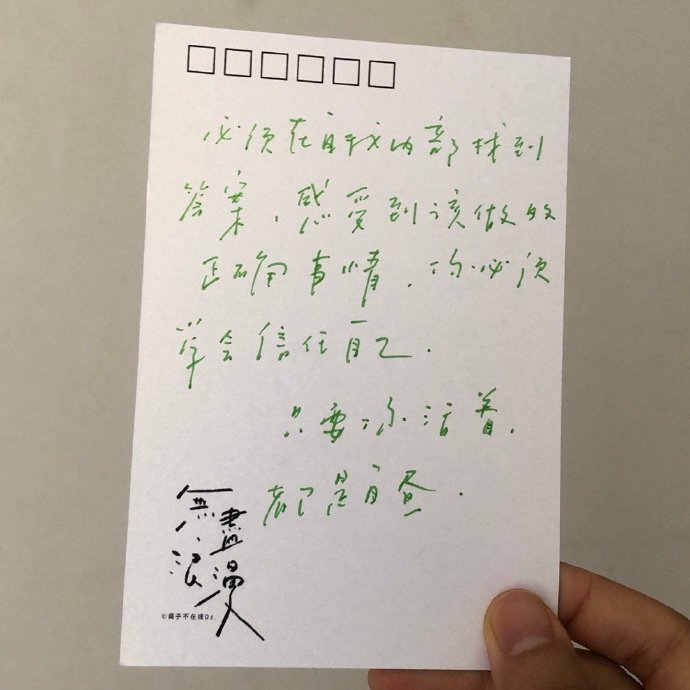 必须在自我内部找到
答案，感受到该做的
正确事情，你必须
学会信任自己．
只要你活着，
都是白昼．
無盡
浪漫